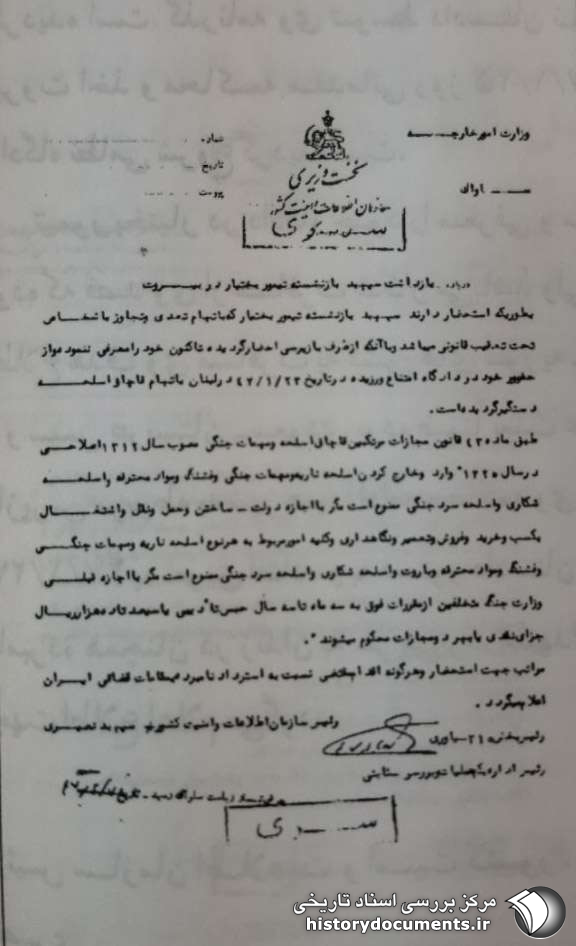 وزارت امور خارجه
ساواك
شماره
تاریخ
پیوست
نخست وزیری
سازمان اطلاعات و امنیت کشور
سری
درباره بازداشت سپهبد بازنشسته تیمور بختیار در بیروت
بطوریکه استحضار دارند سپهبد بازنشسته تیمور بختیار که باتهام تعدی وتجاوز باشخاص
تحت تعقیب قانونی میباشد وباآنکه ازطرف بازپرسی احضارگردیده تاکنون خود رامعرفی ننموده واز
حضور خود در دادگاه امتناع ورزیده در تاریخ ۴۷/۱/۲۳ در لبنان باتهام قاچاق اسلحه
دستگیرگردیده‌است.
طبق ماده ۴۳ قانون مجازات مرتکبین قاچاق اسلحه ومهمات جنگی مصوب سال ۱۳۱۲ اصلاحی
در سال ۱۳۳۵ " وارد وخارج کردن اسلحه ناریه ومهمات جنگی وفشنگ ومواد محترقه واسلحه
شکاری واسلحه سرد جنگی ممنوع است مگر با اجازه دولت - ساختن وحمل ونقل واشتغال
بکسب وخرید وفروش وتعمیر ونگاهداری وکلیه امورمربوط به هرنوع اسلحه ناریه ومهمات جنگی
وفشنگ ومواد محترقه وباروت واسلحه شکاری واسلحه سرد جنگی ممنوع است مگر با اجازه قبلی
وزارت جنگ متخلفین ازمقررات فوق به سه ماه تا سه سال حبس تادیبی یا سیصد تا ده هزار ریال
جزای نقدی یا بهر دومجازات محکوم میشوند ".
مراتب جهت استحضار وهرگونه اقدام مقتضی نسبت به استرداد نامبرده بمقامات قضائی ایران
اعلام میگردد.
رئیس سازمان اطلاعات وامنیت کشور سپهبد نصیری
رئیس بخش ۲۱۰ یاوری
رئیس اداره یکم عملیات وبررسی ثابتی
سری
مرکز بررسی اسناد تاریخی
historydocuments.ir